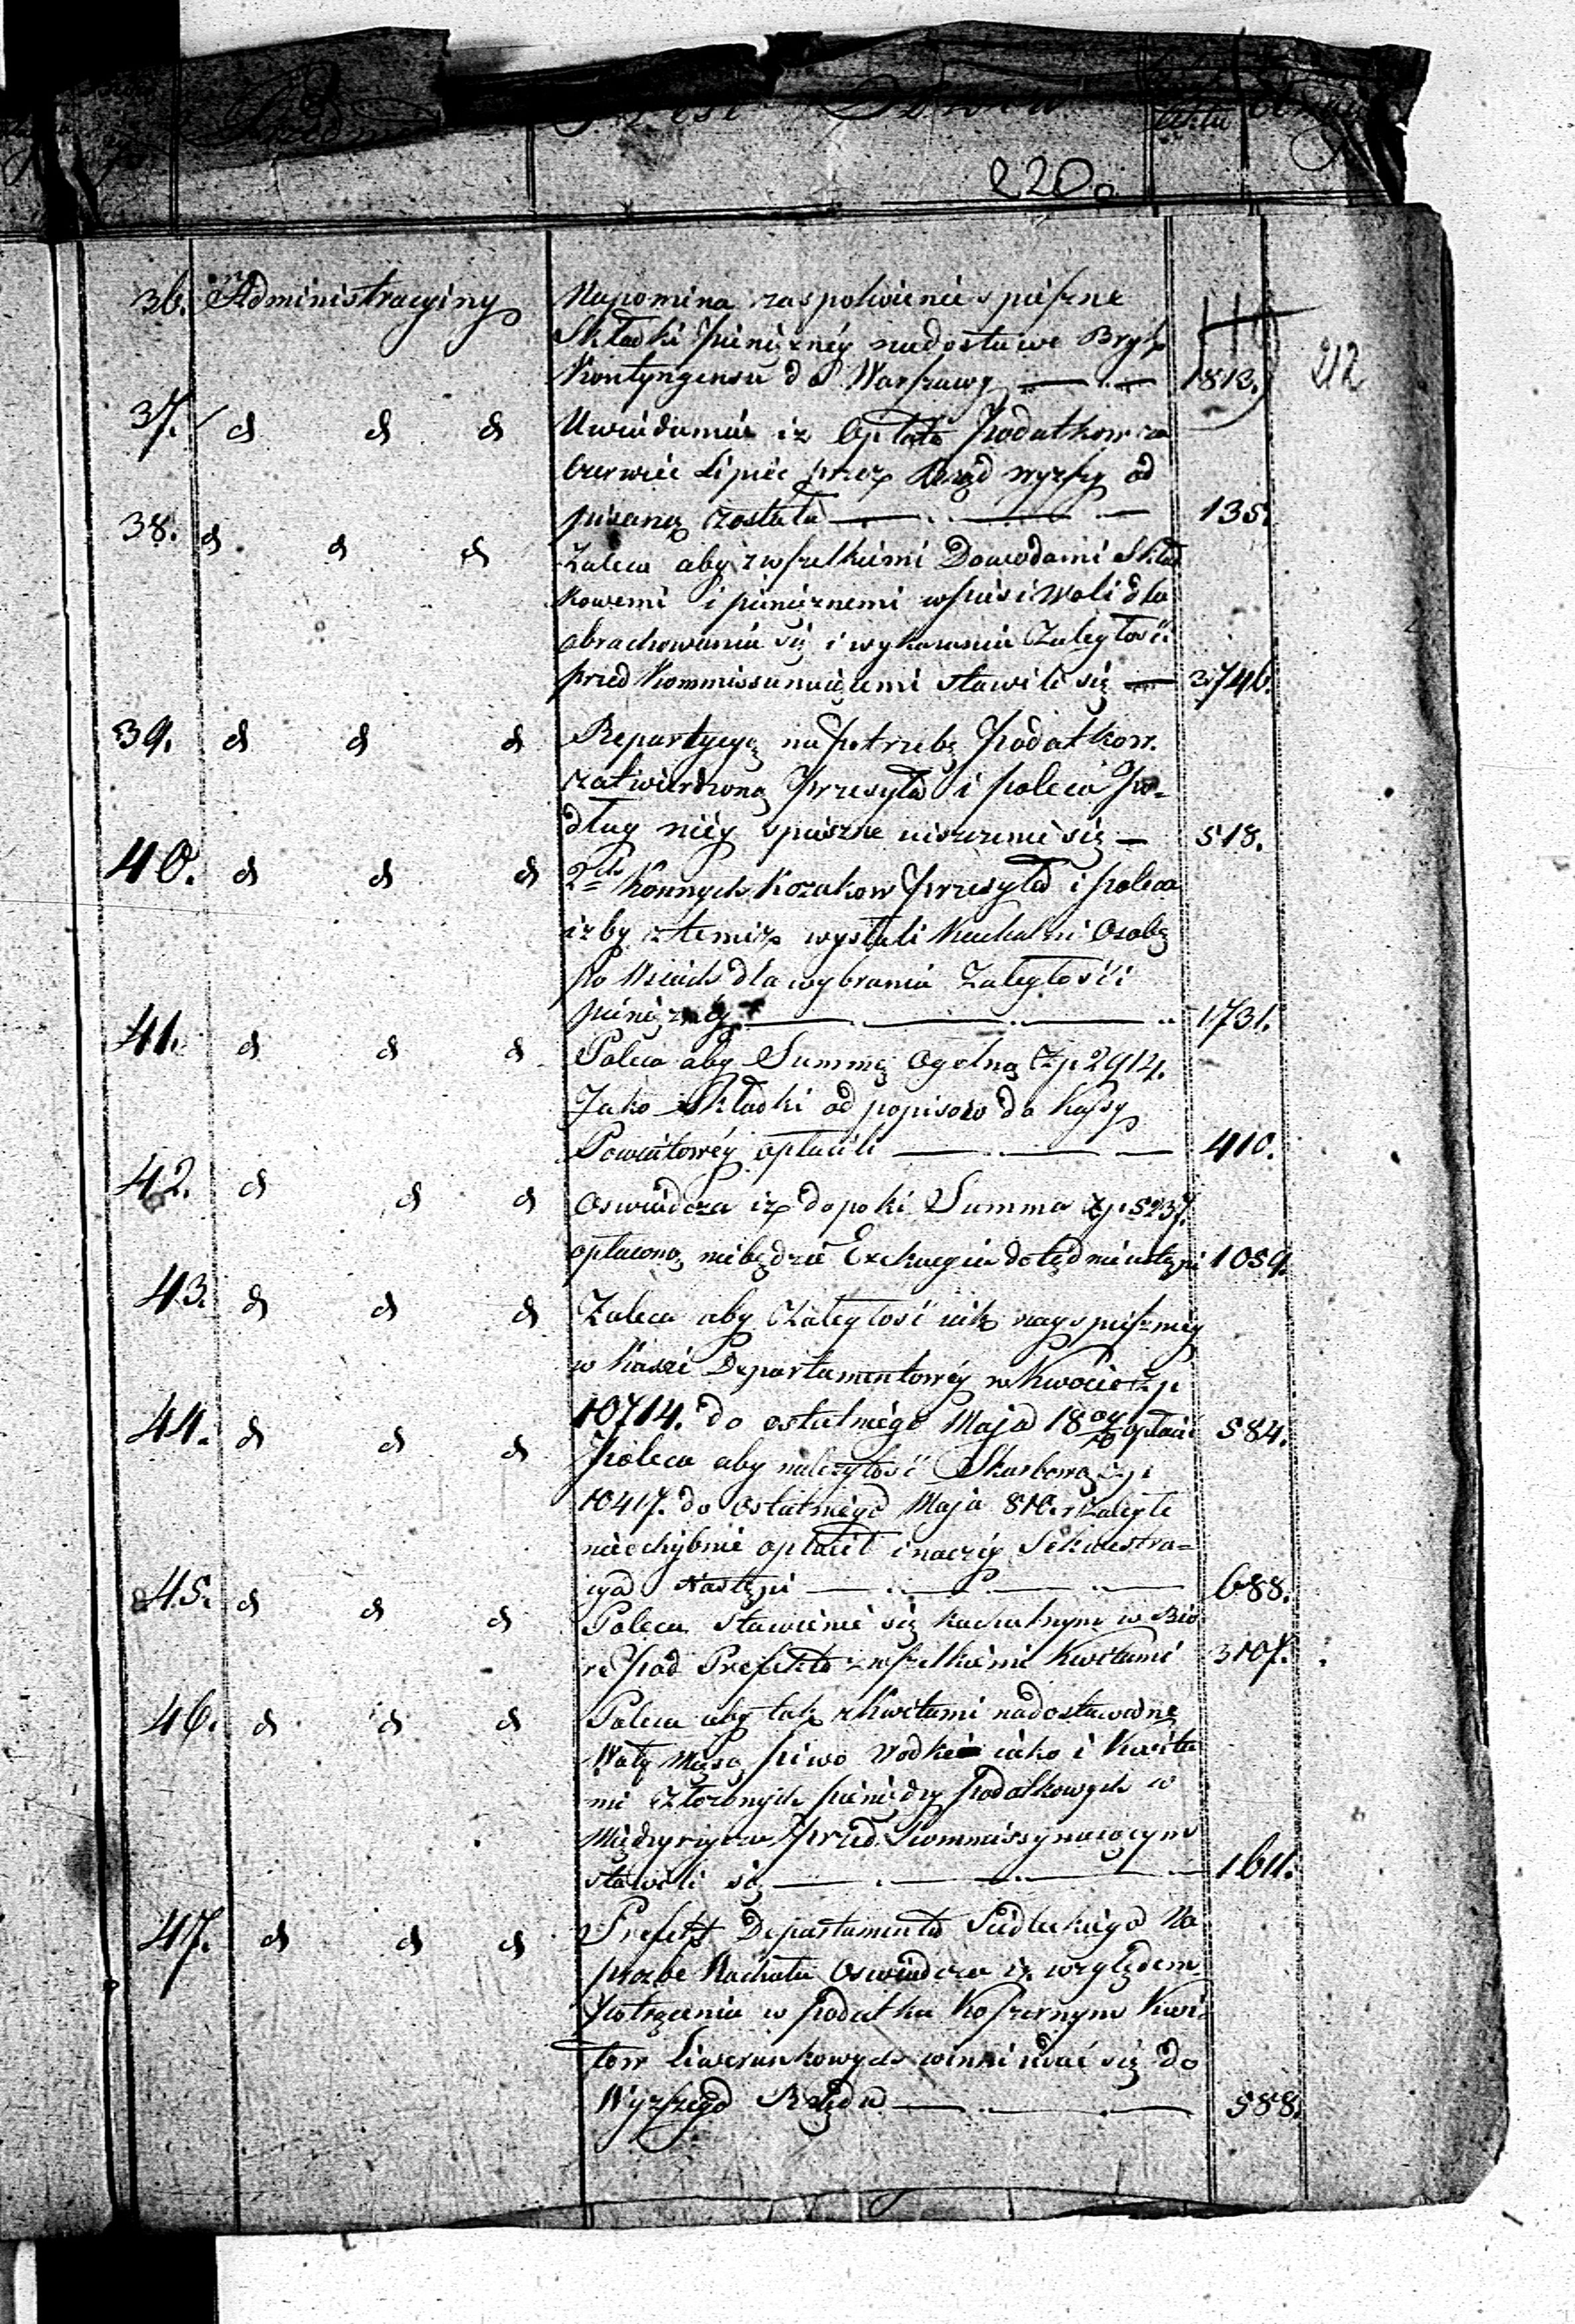 Treść
220
36. Administracyiny Napomina zaspokoienie spieszne
Składki pieniężnéy nadostawe Bryk
Kontyngensu do Warszawy 1813. 212
37. d d d Uwiadamia iż Opłata Podatkow za
Czerwiec Lipiec przez Rząd wyzszy od
pisaną została 135.
38. d d d Zaleca aby zwszelkiemi Dowodami Skład
kowemi i pieniężnemi wpisi woli dla
obrachowania się i wykazania Zaległości
przed Kommissuiuiącemi stawili się 3746.
39. d d d Repartycyą na potrzebę Podatkow
zatwierdzoną Przesyła i poleca po-
dług niéy spieszne uiszczenie się 518.
40. d d d 2ch Konnych Kozakow Przesyła i poleca
izby ztemiż wysłali Kachalni Osobę
Po Wsiach dla wybrania Zaległości
pieniężnéy 1731.
41. d d d Poleca aby Summę Ogolną Zp 2914.
Jako Składki od popisow do Kassy
Powiatowéy opłacili 410.
42. d d d Oswiadcza iż dopoki Summa Zp 5237.
opłaconą niebędzie Exekucyia dotąd nieustąpi 1059.
43. d d d Zaleca aby Zaległość iak nayspieszniéy
w Kassie Departamentowéy w Kwocie Zp
10714. do ostatniégo Maja 18 09/10 opłacić 584.
44. d d d Poleca aby należytość Skarbową Zp
10417. do Ostatniégo Maja 810. r Zaległe
niechybnie opłacił inaczéy Sekwestra-
cya Nastąpi 688.
45. d d d Poleca Stawienie się Kachalnym w Bió
rze Pod Prefekta zwszelkiemi Kwitami 3107.
46. d d d Poleca aby tak z Kwitami nadostawione
Woły Mięso piwo Wodkę iako i Kwita
mi złożonych pieniędzy Podatkowych w
Międzyrzycu Przed Kommissynuiącym
stawili się 1611.
47. d d d Prefekt Departamentu Siedleckiégo Na
prozbe Kachału Oswiadcza iż względem
Potrącenia w Podatku Koszernym Kwi
tow Liwerunkowych winni udać się do
Wyższégo Rządu 588.